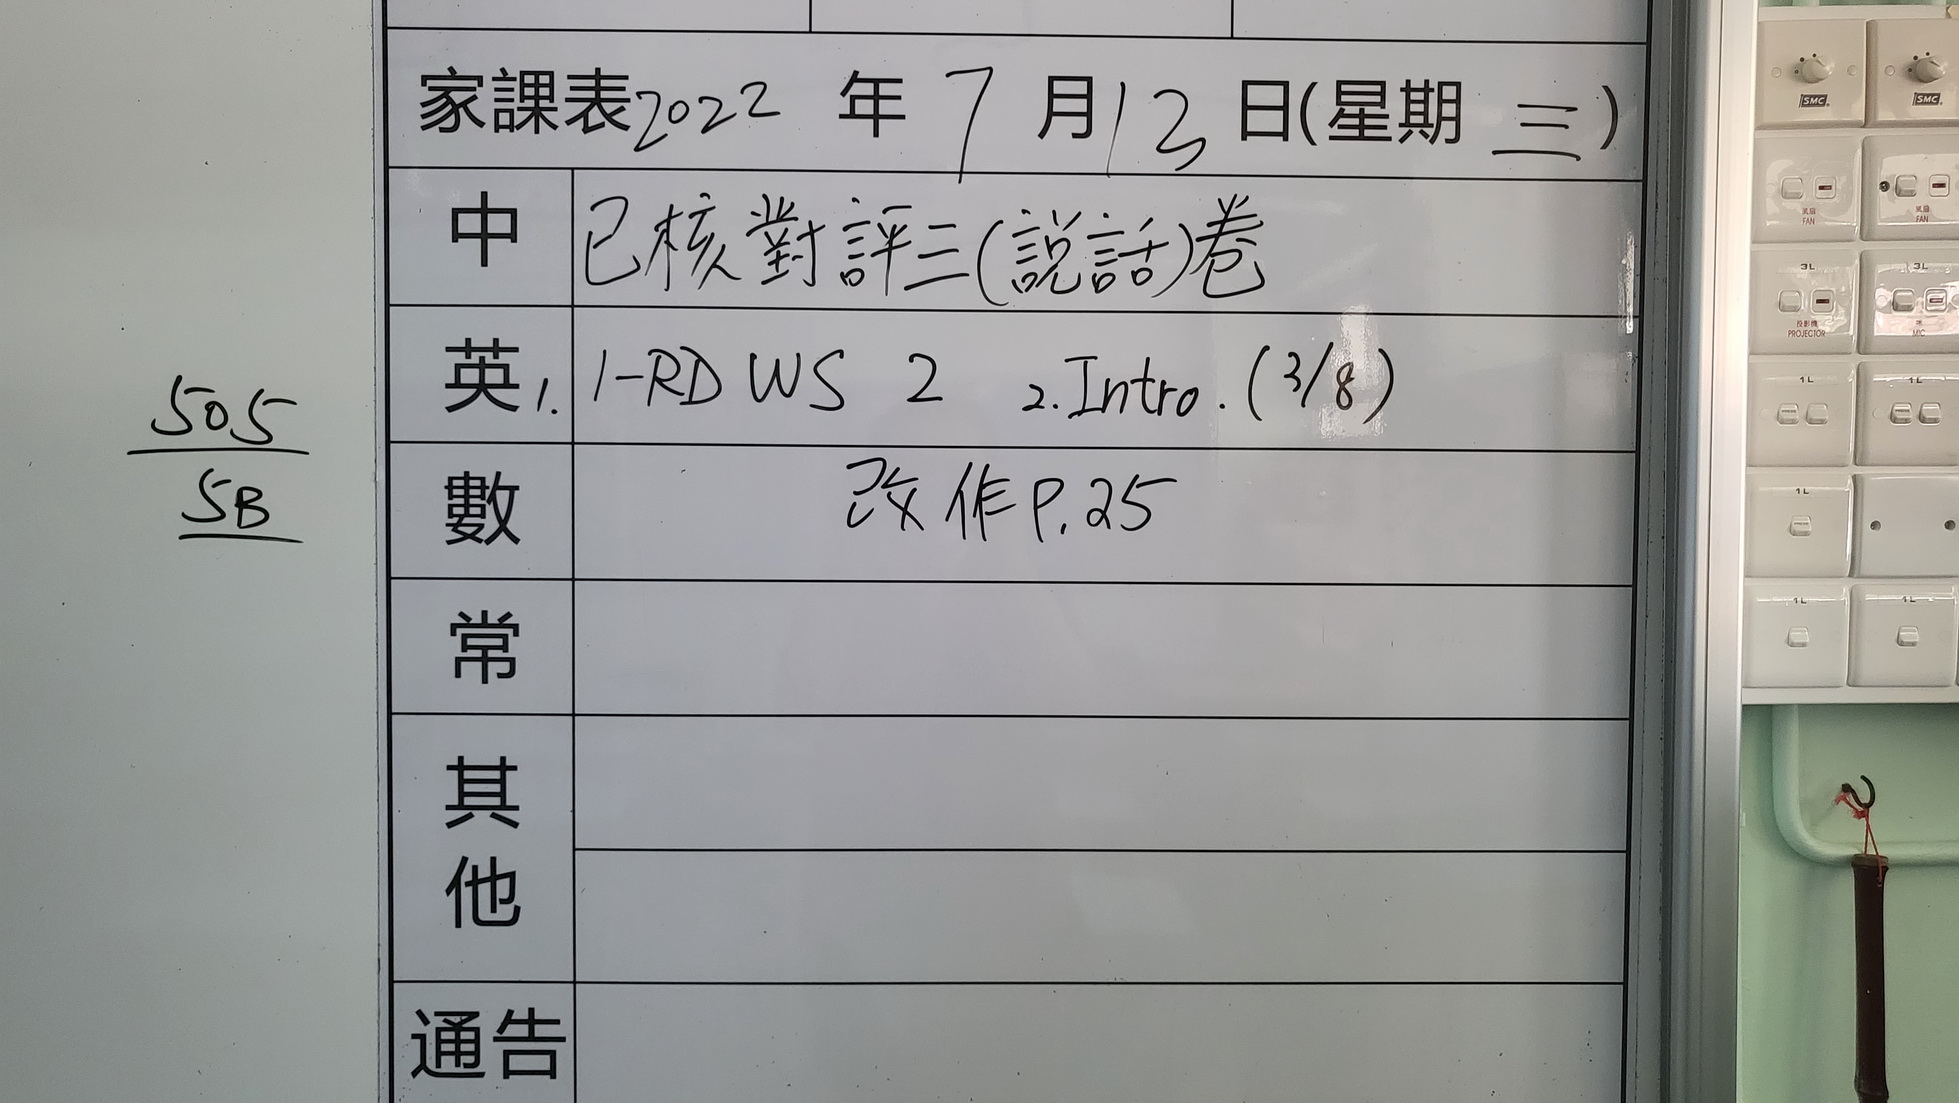 家課表2022年7月13日(星期三)
中 已核對評三(說話)卷
英 1. 1-RD WS 2 2. Intro. (3/8)
數 改作P.25
常
其他
通告
505
5B
SMC
SMC
氣扇
FAN
氣扇
FAN
3L
3L
投影機
PROJECTOR
MIC
1L
1L
1L
1L
1L